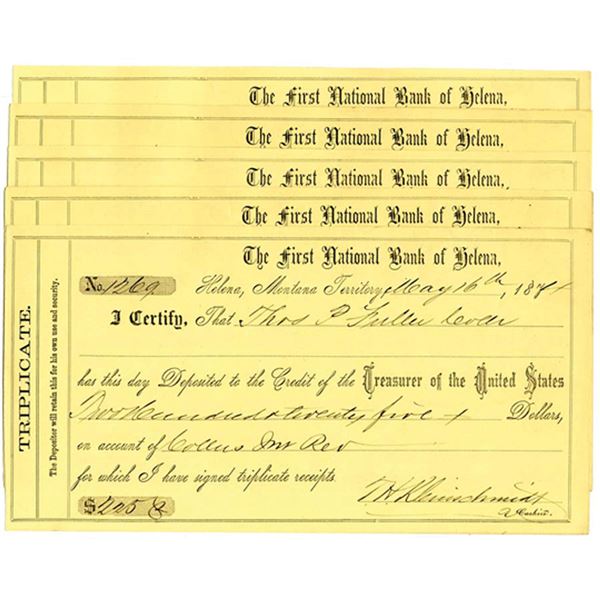 The First National Bank of Helena,
The First National Bank of Helena,
The First National Bank of Helena,
The First National Bank of Helena,
The First National Bank of Helena,
No. 1269
Helena, Montana Territory, May 16th, 1874
I Certify, That Thos P Fuller Collr
has this day Deposited to the Credit of the Treasurer of the United States
Two Hundred & twenty five + Dollars,
on account of Collns Int Rev
for which I have signed triplicate receipts.
$225
T H Kleinschmidt
Cashier.
TRIPLICATE.
The Depositor will retain this for his own use and security.